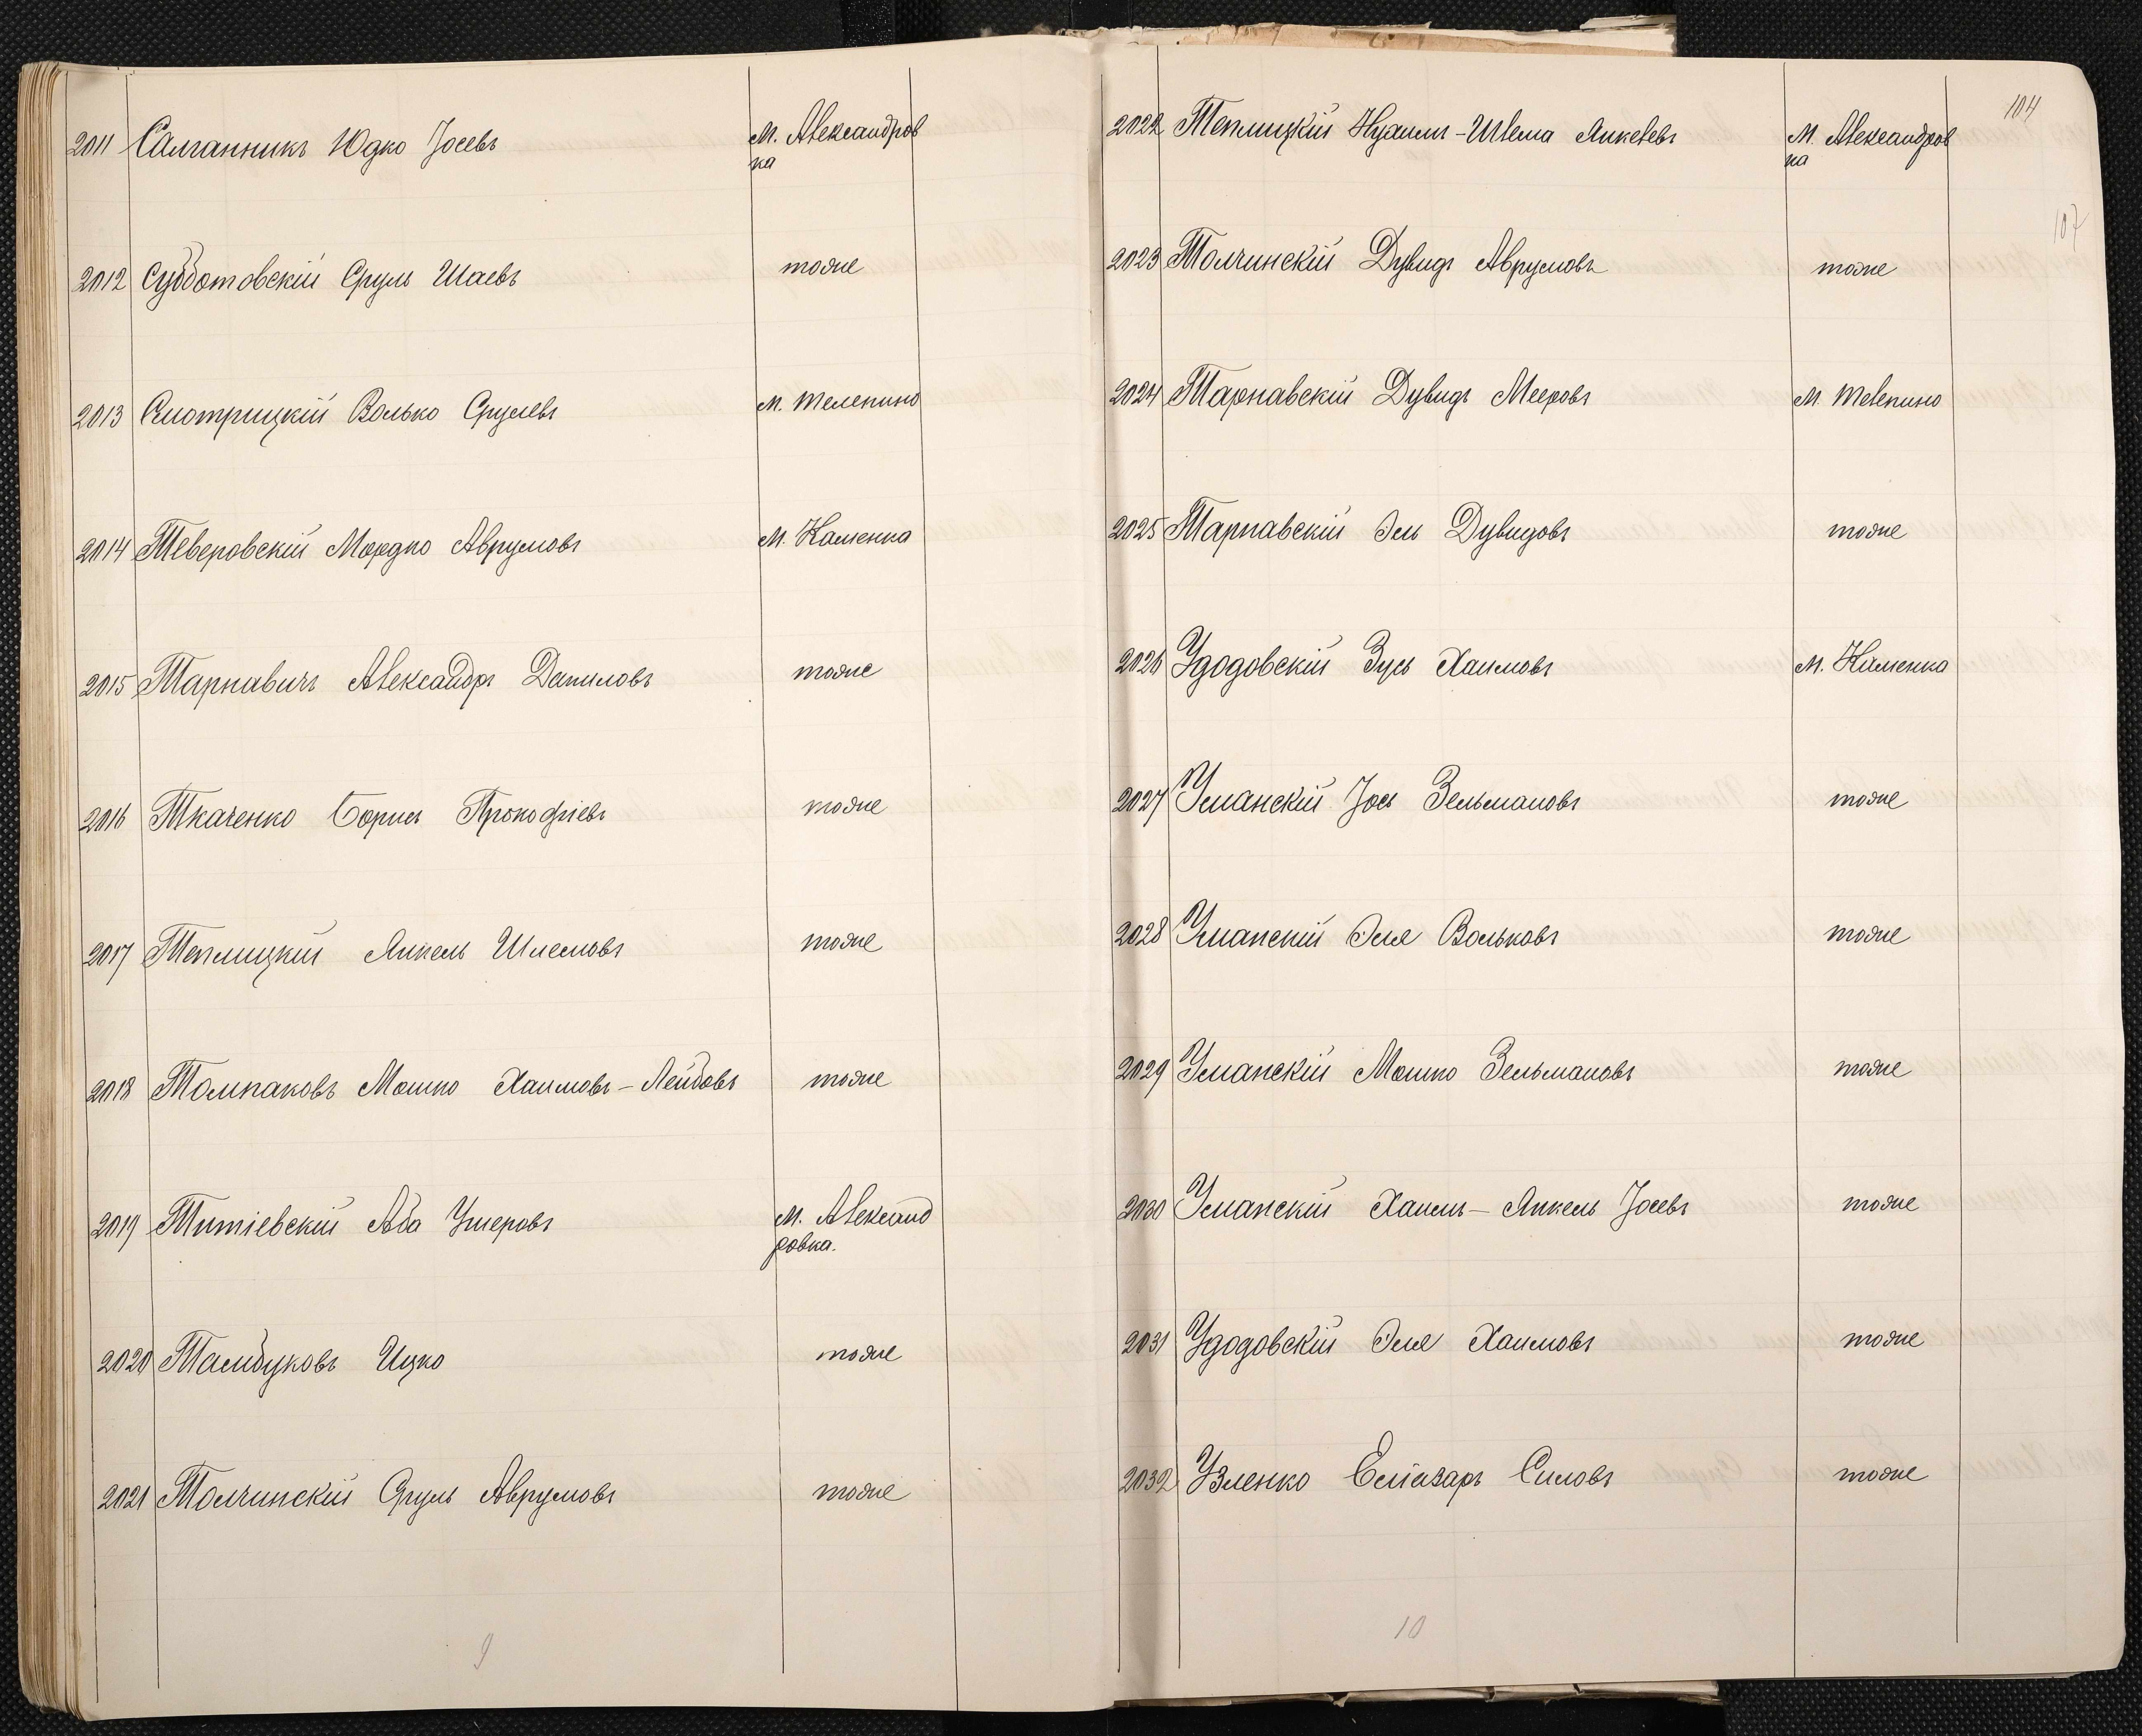 2011 Салганникъ Юдко Іосевъ м. Александров
ка
2012 Субботовскій Сруль Шаевъ тоже
2013 Смотрицкій Волько Срулевъ м. Телепино
2014 Тверовскій Мордко Аврумовъ м. Каменка
2015 Тарнавичъ Александръ Даниловъ тоже
2016 Ткаченко Борисъ Прокофіевъ тоже
2017 Теплицкій Янкель Шлемовъ тоже
2018 Томпаковъ Мошко Хаимовъ-Лейбовъ тоже
2019 Титіевскій Аба Ушеровъ м. Александ
ровка.
2020 Тамбуковъ Ицко тоже
2021 Толчинскій Сруль Аврумовъ тоже
9
104
2022 Теплицкій Нухимъ-Шлема Янкелевъ м. Александров
ка
107
2023 Толчинскій Дувидъ Аврумовъ тоже
2024 Тарнавскій Дувидъ Мееровъ м. Телепино
2025 Тарнавскій Эль Дувидовъ тоже
2026 Удодовскій Зусь Хаимовъ м. Каменка
2027 Уманскій Іось Зельмановъ тоже
2028 Уманскій Эля Вольковъ тоже
2029 Уманскій Мошко Зельмановъ тоже
2030 Уманскій Хаимъ-Янкель Іосевъ тоже
2031 Удодовскій Эля Хаимовъ тоже
2032 Узленко Еліазаръ Силовъ тоже
10